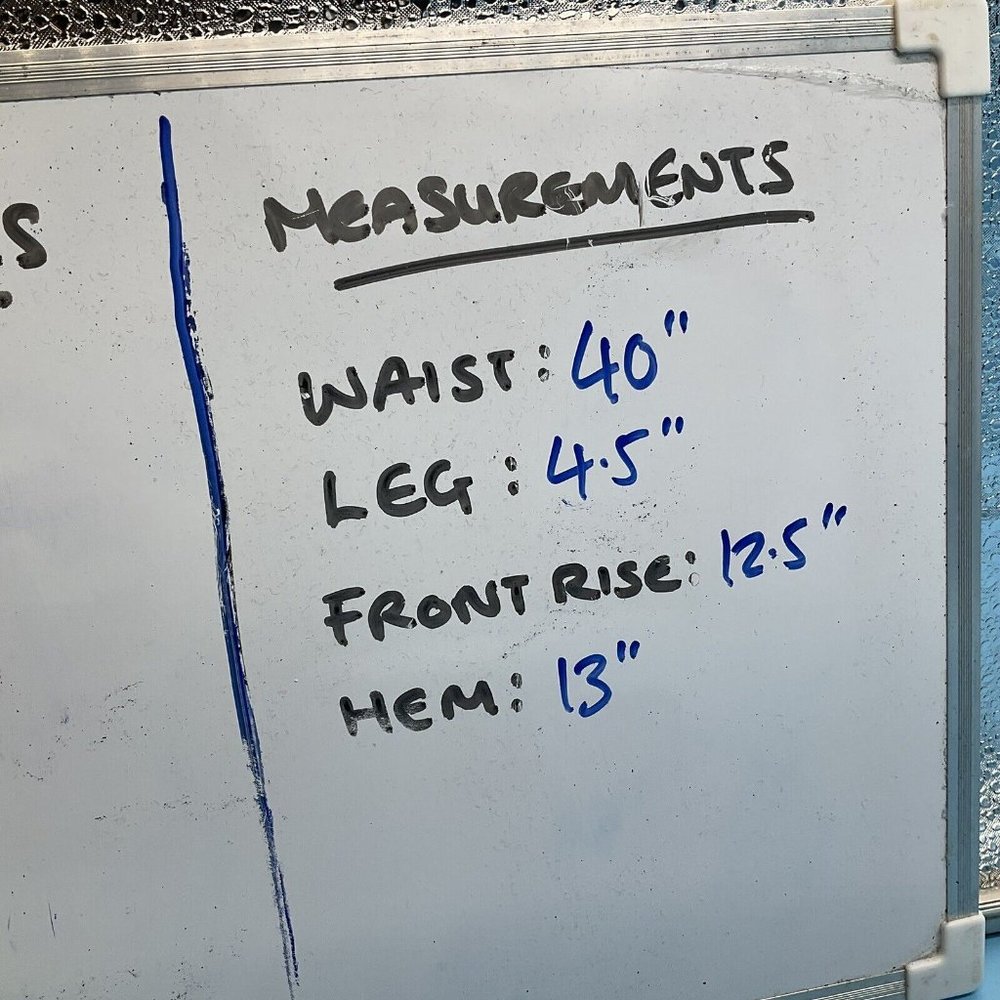 MEASUREMENTS
WAIST: 40"
LEG: 4.5"
FRONT RISE: 12.5"
HEM: 13"